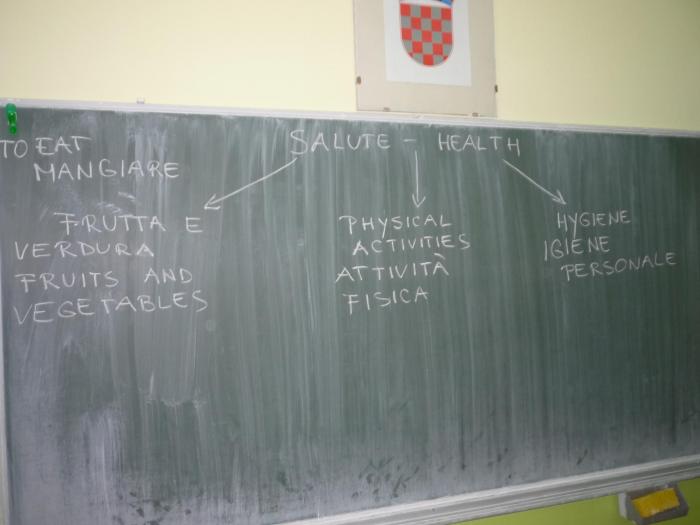 SALUTE - HEALTH
TO EAT
MANGIARE
FRUTTA E
VERDURA
FRUITS AND
VEGETABLES
PHYSICAL
ACTIVITIES
ATTIVITÀ
FISICA
HYGIENE
IGIENE
PERSONALE